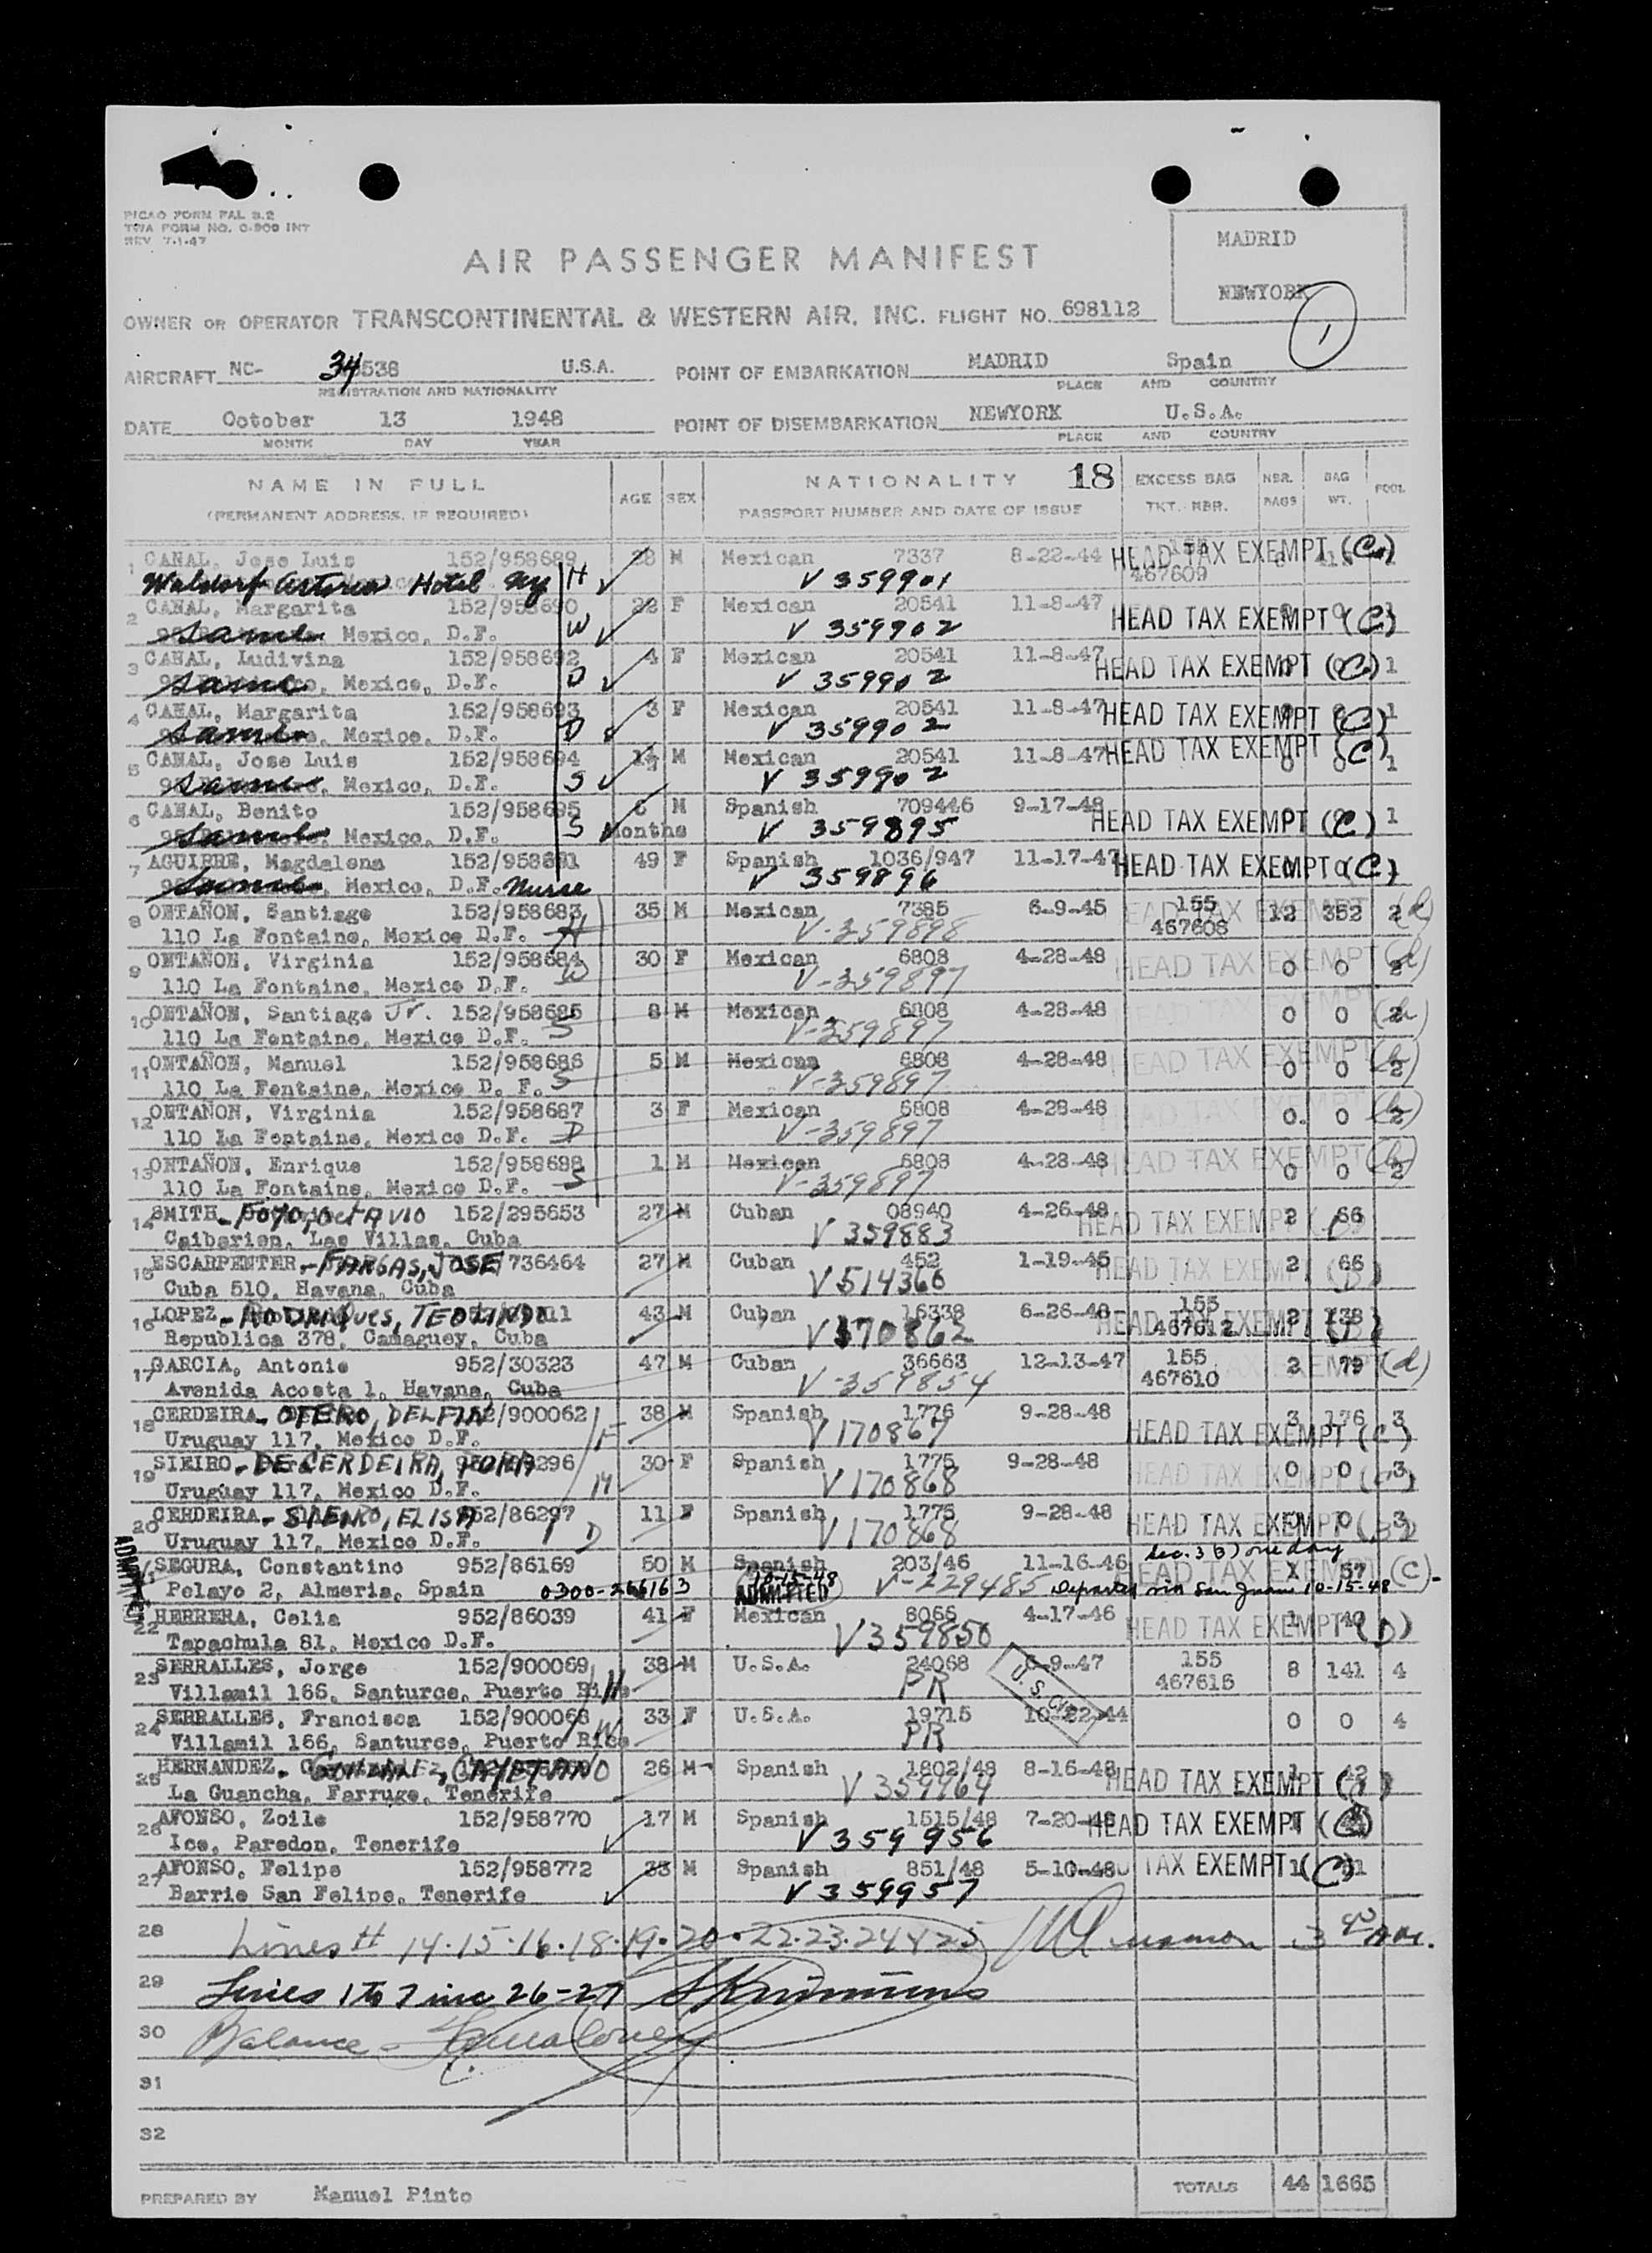 PICAO FORM PAL 3.2
TWA FORM NO. O-900 INT
REV 7-1-47
MADRID
NEWYORK
1
AIR PASSENGER MANIFEST
OWNER OR OPERATOR TRANSCONTINENTAL & WESTERN AIR, INC. FLIGHT NO. 698112
AIRCRAFT NC- 34538 U.S.A. POINT OF EMBARKATION MADRID Spain
REGISTRATION AND NATIONALITY PLACE AND COUNTRY
DATE October 13 1948 POINT OF DISEMBARKATION NEWYORK U.S.A.
MONTH DAY YEAR PLACE AND COUNTRY
NAME IN FULL AGE SEX NATIONALITY 18 EXCESS BAG NBR. BAG POOL
(PERMANENT ADDRESS, IF REQUIRED) PASSPORT NUMBER AND DATE OF ISSUE TKT. NBR. BAGS WT.
1 CANAL, Jose Luis 152/958689 28 M Mexican 7337 8-22-44 HEAD TAX EXEMPT (C)
Waldorf Astoria Hotel NY H V 359901 467609
2 CANAL, Margarita 152/958690 22 F Mexican 20541 11-8-47 HEAD TAX EXEMPT (C)
Same Mexico, D.F. W V 359902
3 CANAL, Ludivina 152/958692 4 F Mexican 20541 11-8-47 HEAD TAX EXEMPT (C) 1
Same Mexico, D.F. D V 359902
4 CANAL, Margarita 152/958693 3 F Mexican 20541 11-8-47 HEAD TAX EXEMPT (C) 1
Same Mexico, D.F. D V 359902
5 CANAL, Jose Luis 152/958694 1½ M Mexican 20541 11-8-47 HEAD TAX EXEMPT (C) 0 0 1
Same Mexico, D.F. S V 359902
6 CANAL, Benito 152/958695 6 M Spanish 709446 9-17-48 HEAD TAX EXEMPT (C) 1
Same Mexico, D.F. S Months V 359895
7 AGUIRRE, Magdalena 152/958691 49 F Spanish 1036/947 11-17-47 HEAD TAX EXEMPT (C)
Same Mexico, D.F. Nurse V 359896
8 ONTAÑON, Santiago 152/958683 35 M Mexican 7385 6-9-45 155 HEAD TAX EXEMPT 12 352 2 (d)
110 La Fontaine, Mexico D.F. H V-359898 467608
9 ONTAÑON, Virginia 152/958684 30 F Mexican 6808 4-28-48 HEAD TAX EXEMPT 0 0 2 (d)
110 La Fontaine, Mexico D.F. W V-359897
10 ONTAÑON, Santiago Jr. 152/958685 8 M Mexican 6808 4-28-48 HEAD TAX EXEMPT 0 0 2
110 La Fontaine, Mexico D.F. S V-359897
11 ONTAÑON, Manuel 152/958686 5 M Mexican 6808 4-28-48 HEAD TAX EXEMPT 0 0 2
110 La Fontaine, Mexico D. F. S V-359897
12 ONTAÑON, Virginia 152/958687 3 F Mexican 6808 4-28-48 HEAD TAX EXEMPT 0 0 2
110 La Fontaine, Mexico D.F. D V-359897
13 ONTAÑON, Enrique 152/958688 1 M Mexican 6808 4-28-48 HEAD TAX EXEMPT 0 0 2
110 La Fontaine, Mexico D.F. S V-359897
14 SMITH - POYO, OCTAVIO 152/295653 27 M Cuban 08940 4-26-48 HEAD TAX EXEMPT 2 66
Caibarien, Las Villas, Cuba V 359883
15 ESCARPENTER - FARGAS, JOSE 736464 27 M Cuban 452 1-19-45 HEAD TAX EXEMPT 2 66
Cuba 510, Havana, Cuba V 514366
16 LOPEZ - RODRIQUES, TEOLINDO 43 M Cuban 16338 6-26-48 155 HEAD TAX EXEMPT 2 138
Republica 378, Camaguey, Cuba V 170862 467612
17 GARCIA, Antonio 952/30323 47 M Cuban 36663 12-13-47 155 2 79 (d)
Avenida Acosta 1, Havana, Cuba V-359854 467610
18 CERDEIRA - OTERO, DELFIN 152/900062 38 M Spanish 1776 9-28-48 HEAD TAX EXEMPT (C) 3 176 3
Uruguay 117, Mexico D.F. F V 170867
19 SIEIRO - DE CERDEIRA, PURA 30 F Spanish 1775 9-28-48 HEAD TAX EXEMPT 0 0 3
Uruguay 117, Mexico D.F. M V 170868
20 CERDEIRA - SIEIRO, ELISA 952/86297 11 F Spanish 1775 9-28-48 HEAD TAX EXEMPT 0 0 3
Uruguay 117, Mexico D.F. D V 170868
ADMITTED
SEGURA, Constantino 952/86169 50 M Spanish 203/46 11-16-46 Sec. 3 (3) one day HEAD TAX EXEMPT X 57 (C)
Pelayo 2, Almeria, Spain 0300-266163 10-15-48 ADMITTED V-229485 Departed via San Juan 10-15-48
22 HERRERA, Celia 952/86039 41 F Mexican 8066 4-17-46 HEAD TAX EXEMPT 1 40 (D)
Tapachula 81, Mexico D.F. V 359850
23 SERRALLES, Jorge 152/900069 38 M U.S.A. 24068 6-9-47 155 8 141 4
Villamil 166, Santurce, Puerto Rico H PR U. S. CIT. 467616
24 SERRALLES, Francisca 152/900068 33 F U.S.A. 19715 10-22-44 0 0 4
Villamil 166, Santurce, Puerto Rico W PR
25 HERNANDEZ - GONZALEZ, CAYETANO 26 M Spanish 1802/48 8-16-48 HEAD TAX EXEMPT 1 42
La Guancha, Farruge, Tenerife V 359964
26 AFONSO, Zoilo 152/958770 17 M Spanish 1515/48 7-20-48 HEAD TAX EXEMPT (C)
Ico, Paredon, Tenerife V 359956
27 AFONSO, Felipe 152/958772 33 M Spanish 851/48 5-10-48 TAX EXEMPT (C)
Barrio San Felipe, Tenerife V 359957
28 Lines # 14.15.16.18.19.20.22.23.24 & 25
29 Lines 1 to 7 inc 26-27
30 Balance -
31
32
PREPARED BY Manuel Pinto TOTALS 44 1665